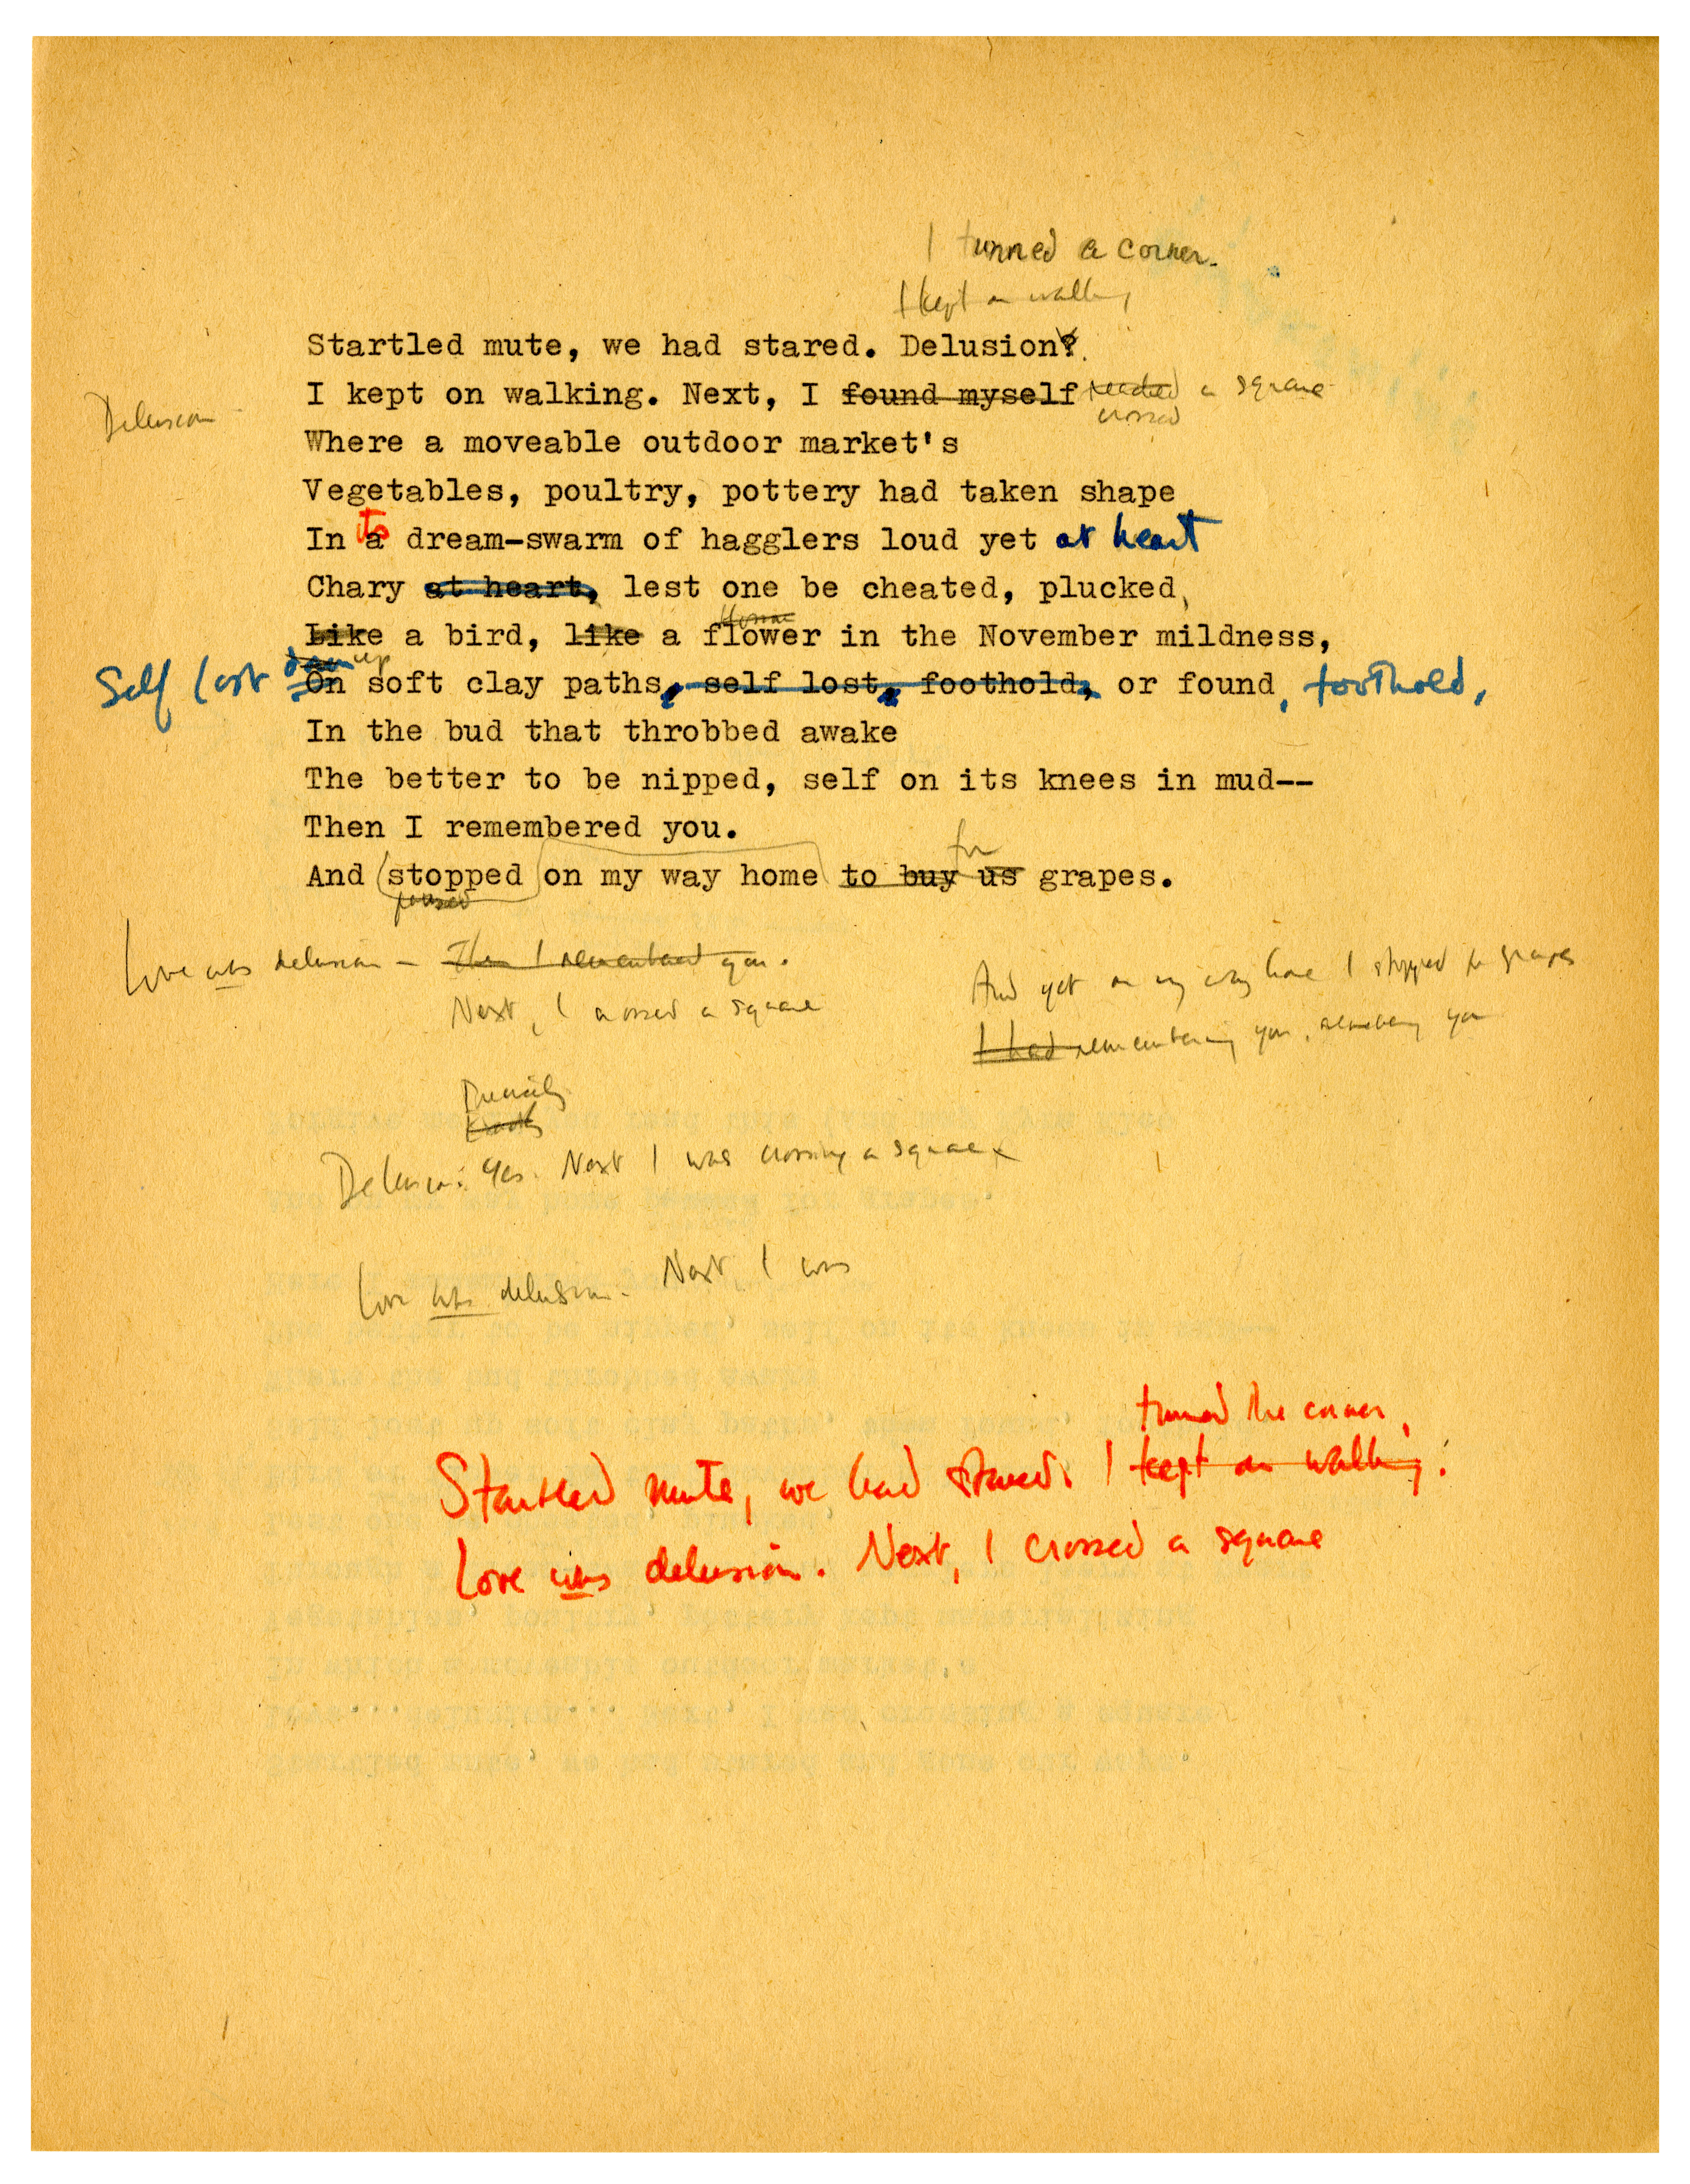 I turned a corner.
I kept on walking
Startled mute, we had stared. Delusion?.
I kept on walking. Next, I found myself reached a square
crossed
Delusion
Where a moveable outdoor market's
Vegetables, poultry, pottery had taken shape
its
In a dream-swarm of hagglers loud yet at heart
Chary at heart, lest one be cheated, plucked,
blossom
Like a bird, like a flower in the November mildness,
down up
Self lost On soft clay paths, self lost, foothold, or found, foothold,
In the bud that throbbed awake
The better to be nipped, self on its knees in mud--
Then I remembered you.
for
And stopped on my way home to buy us grapes.
paused
Love was delusion — Then I remembered you.
Next, I crossed a square
And yet on my way home I stopped for grapes
I had remembering you, remembering you
Delusion. Yes. Next I was crossing a square
Love was delusion. Next, I was
turned the corner,
Startled mute, we had stared. I kept on walking.
Love was delusion. Next, I crossed a square